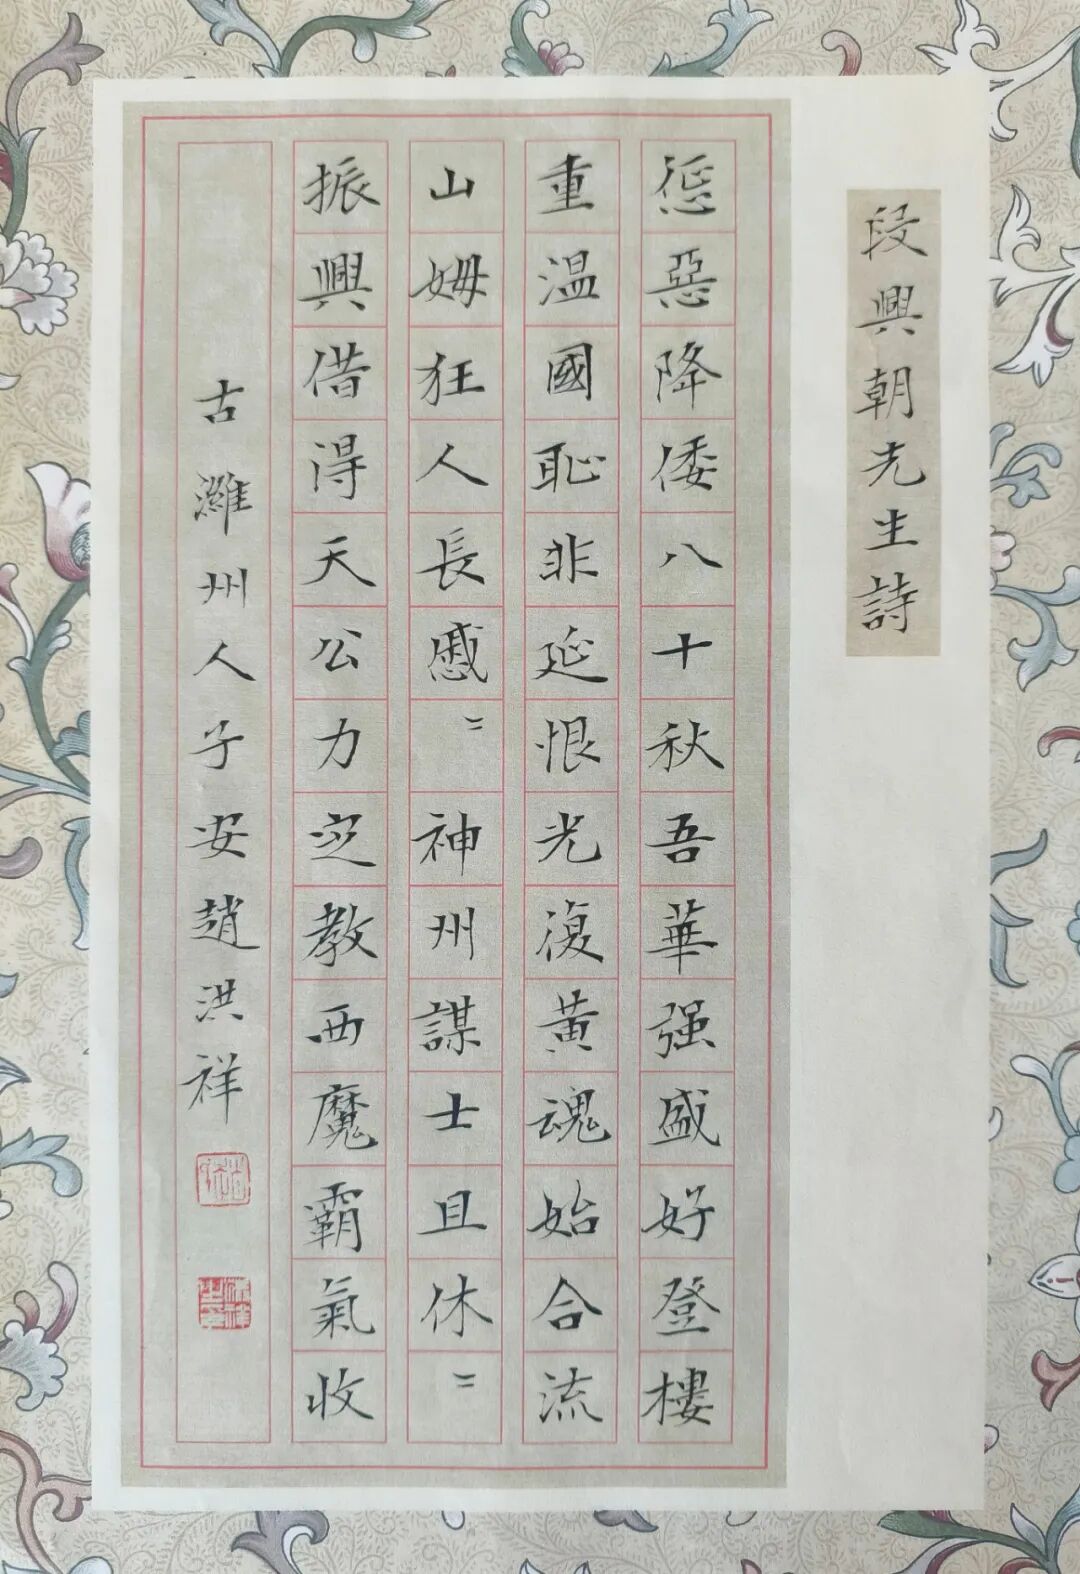 段興朝先生詩
惩惡降倭八十秋吾華强盛好登樓
重温國恥非延恨光復黄魂始合流
山姆狂人長慼〻神州謀士且休〻
振興借得天公力定教西魔霸氣收
古濰州人子安趙洪祥